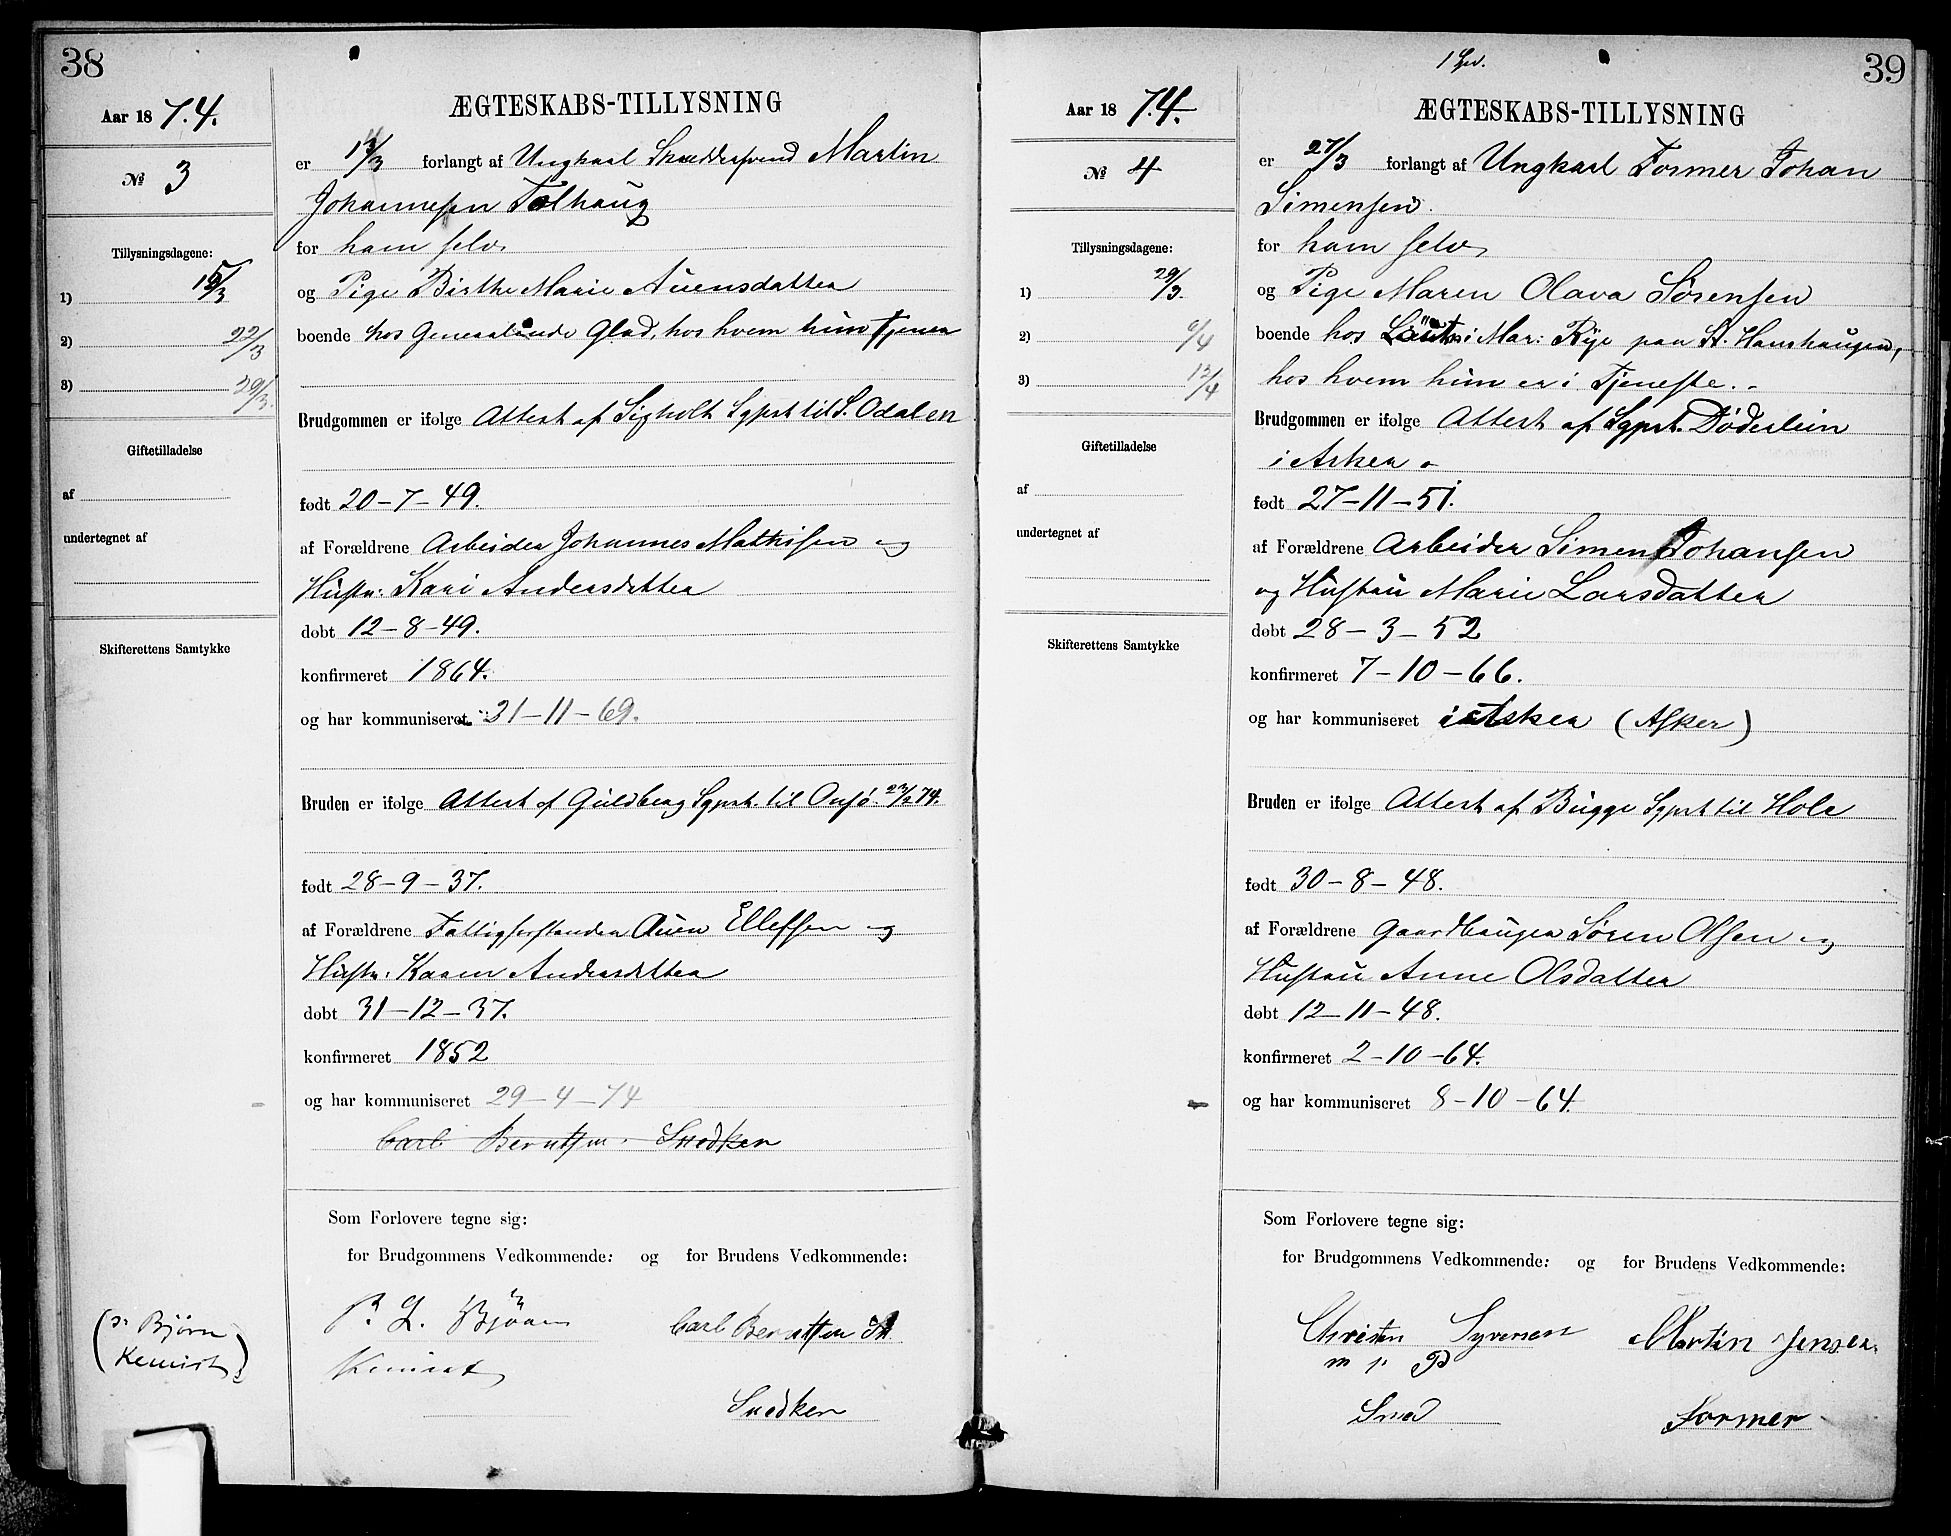 38
Aar 1874.
№ 3
Tillysningsdagene:
1) 15/3
2) 22/3
3) 29/3.
Giftetilladelse
af
undertegnet af
Skifterettens Samtykke
(P. Bjørn
Kemist)
ÆGTESKABS-TILLYSNING
er forlangt af Ungkarl Skræddersvend Martin
Johannesen Tolhaug
for ham selv
og Pige Birthe Marie Auensdatter
boende hos Glad, hos hvem hun tjener
Brudgommen er ifølge Attest af Sgprst til S. Odalen
født 20-7-49.
af Forældrene Arbeider Johannes Mathisen og
Hustr. Kari Andersdatter
døbt 12-8-49.
konfirmeret 1864.
og har kommuniseret 21-11-69.
Bruden er ifølge Attest af Guldberg Sgprst. til Onsø 74.
født 28-9-37.
af Forældrene Fattigforstander Auen Ellefsen og
Hustr. Karen Andersdatter
døbt 31-12-37.
konfirmeret 1852
og har kommuniseret 29-4-74
Carl Berntsen. Snedker
Som Forlovere tegne sig:
for Brudgommens Vedkommende: og for Brudens Vedkommende:
P. L. Bjørn Carl Berntsen
Kemist
Snedker
39
Aar 1874.
№ 4
Tillysningsdagene:
1) 29/3.
2) 6/4
3) 12/4
Giftetilladelse
af
undertegnet af
Skifterettens Samtykke
ÆGTESKABS-TILLYSNING
er 27/3 forlangt af Ungkarl Former Johan
Simensen
for ham selv
og Pige Maren Olava Sørensen
boende hos Mar: Rye paa St. Hanshaugen,
hos hvem hun er i Tjeneste.
Brudgommen er ifølge Attest af Sgprst. Døderlein
i Asker
født 27-11-51.
af Forældrene Arbeider Simen Johansen
og Hustru Marie Larsdatter
døbt 28-3-52
konfirmeret 7-10-66.
og har kommuniseret i Asker (Asker)
Bruden er ifølge Attest af Bugge Sgprst til Hole
født 30-8-48.
af Forældrene Gaardbruger Søren Olsen og
Hustru Anne Olsdatter
døbt 12-11-48.
konfirmeret 2-10-64.
og har kommuniseret 8-10-64.
Som Forlovere tegne sig:
for Brudgommens Vedkommende: og for Brudens Vedkommende:
Christen Syversen Martin Jensen
m p P
Smed Former